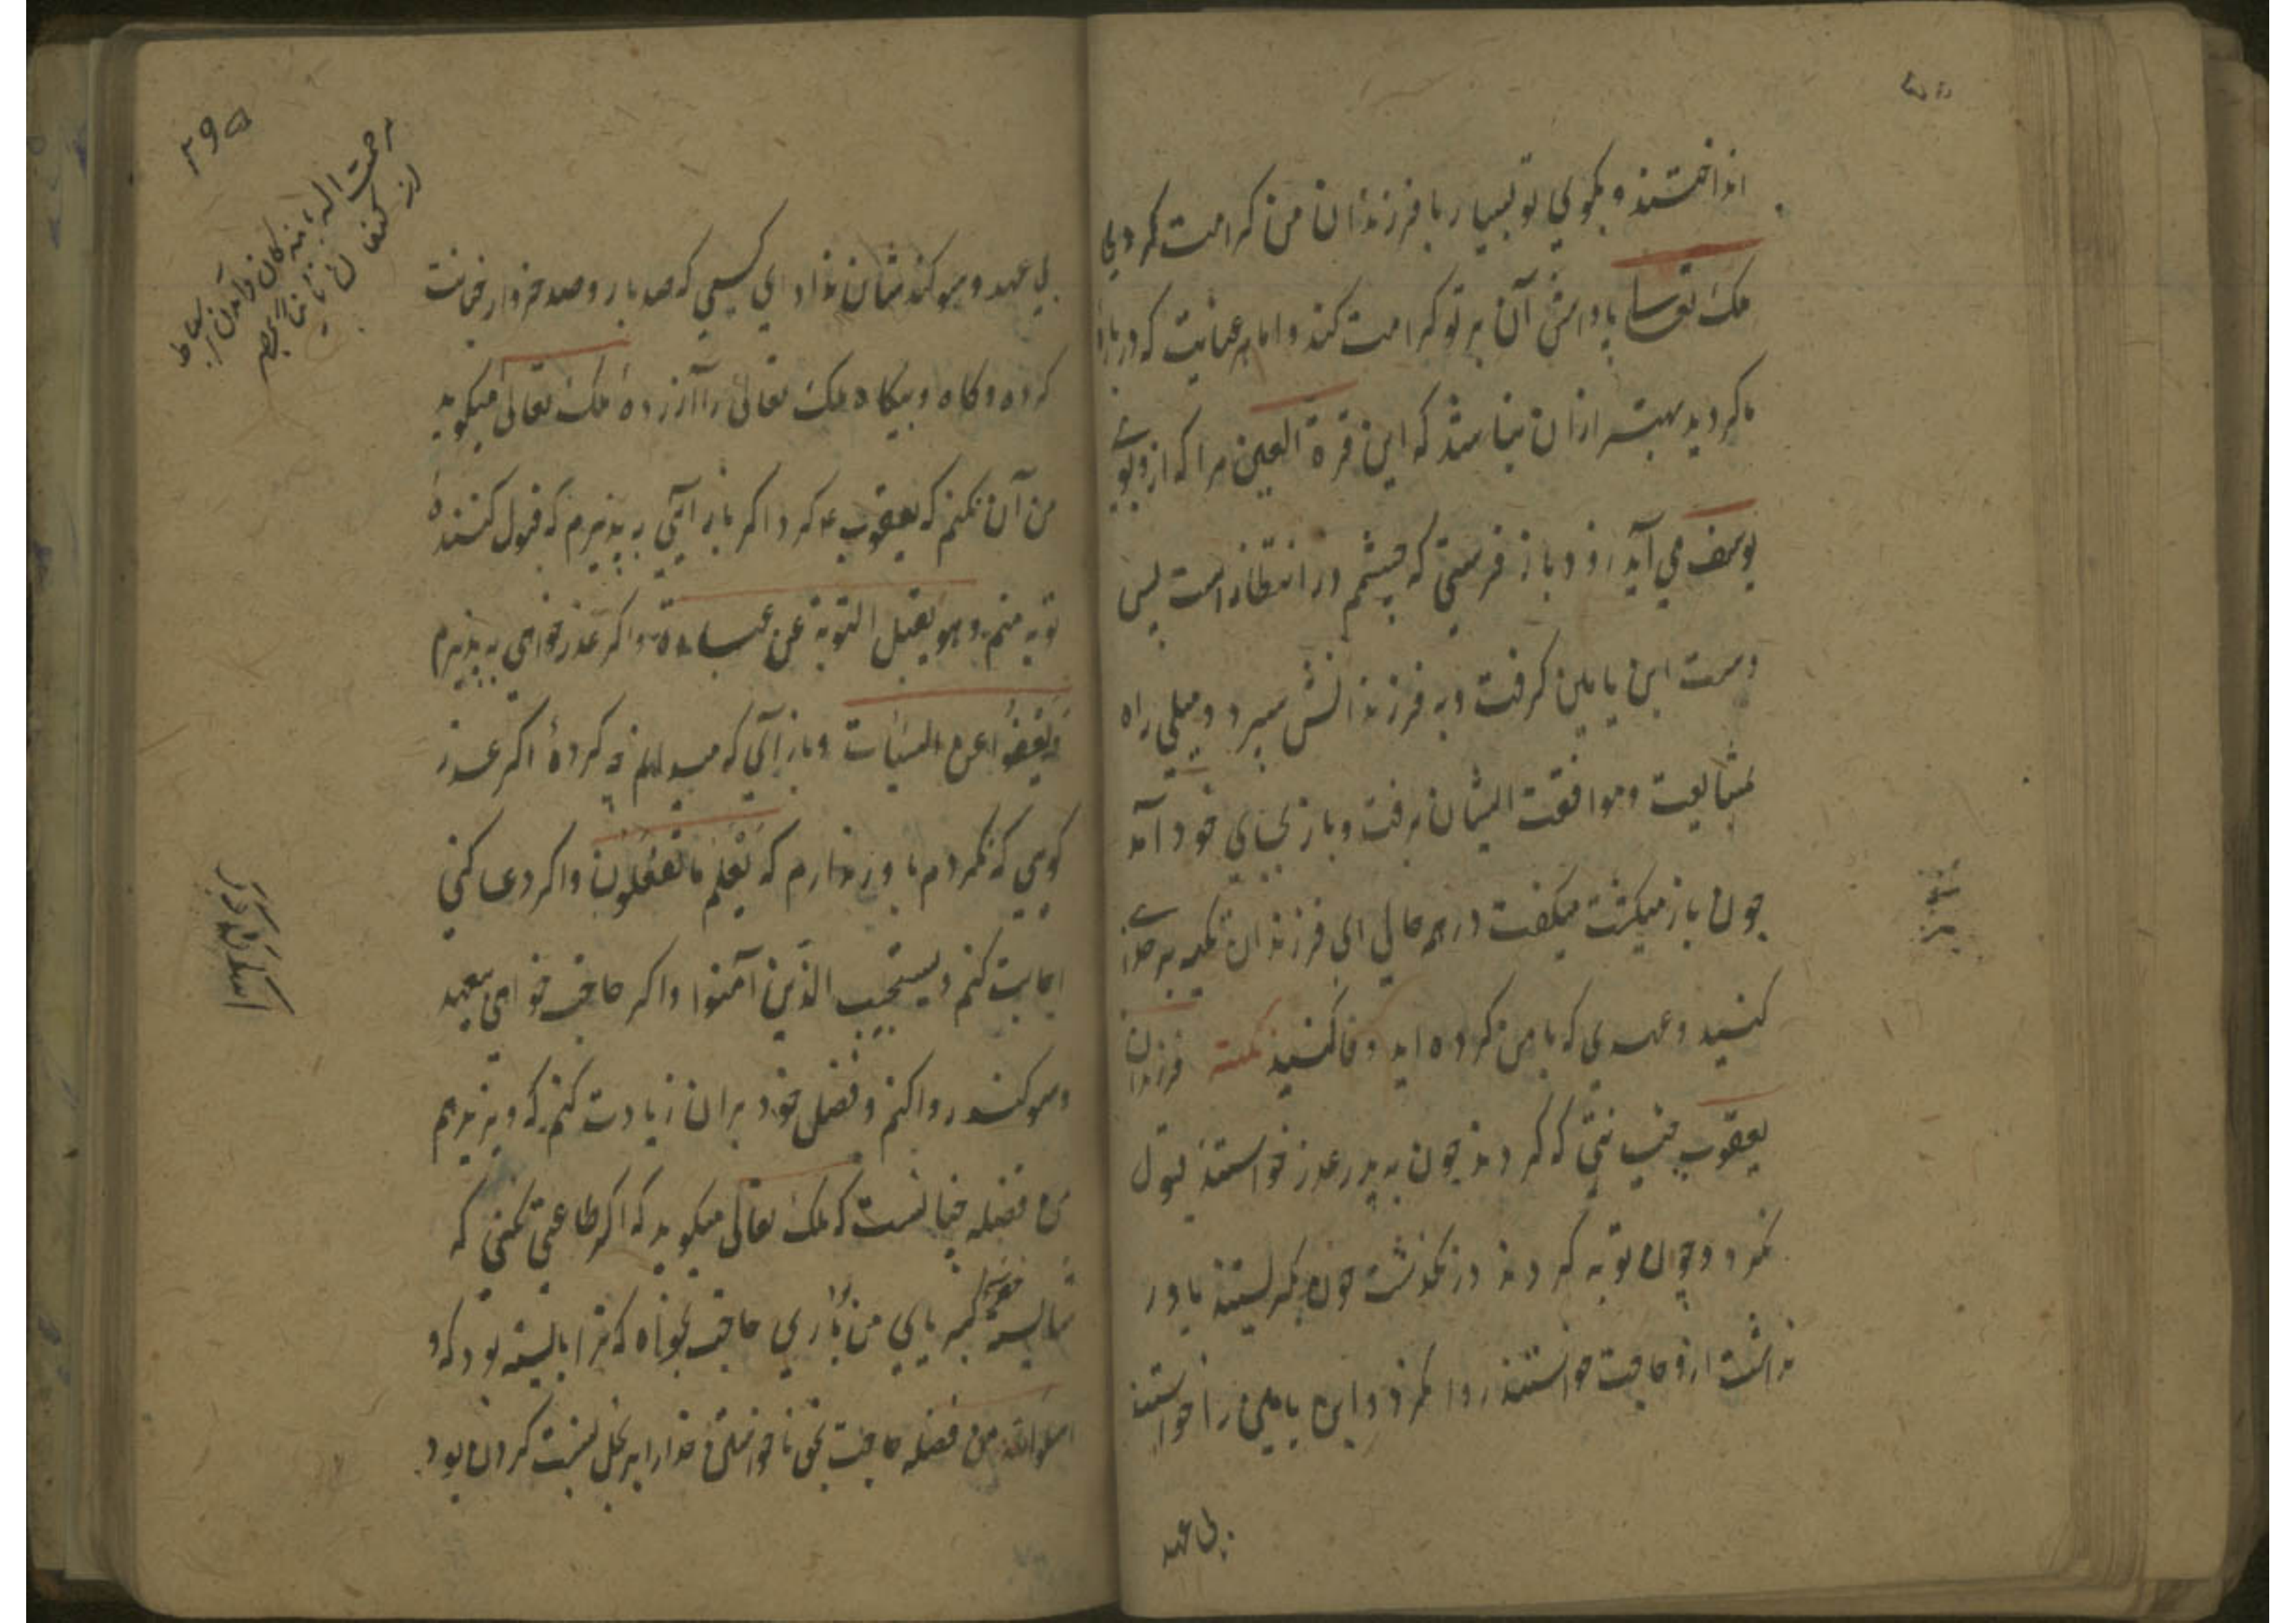 انداختند و بكوی تو بسیار با فرزندان من كرامت كردی
ملك تعالی پاداش آن بر تو كرامت كند و اما هر عنایت كه در باره
ما كردید بهتر ازان نباشد كه این قرة العین مرا كه ازو بوی
یوسف می آید زود باز فرستی كه چشم در انتظار است پس
دست ابن یامین كرفت و به فرزندانش سپرد و میلی راه
بمشایعت و موافقت ایشان برفت و باز بجای خود آمد
چون باز میكشت میكفت در هر حالی ای فرزندان تكیه بر خدای
كنید و عهدی كه با من كرده اید وفا كنید نكته فرزندان
یعقوب خیانتی كه كردند چون به پدر عذر خواستند قبول
نكرد و چون توبه كردند در نكذشت چون بكریستند باور
نداشت ازو حاجت خواستند روا نكرد و ابن یامین را خواستند
بی عهد
بی عهد و سوكند بشان نداد ای كسی كه صد بار و صد خروار خیانت
كرده و كاه و بیكاه ملك تعالی را آزرده ملك تعالی میكوید
من آن نكنم كه یعقوب كرد اكر باز آیی به پذیرم كه قبول كننده
توبه منم و هو یقبل التوبة عن عباده و اكر عذر خواهی به پذیرم
وَیَعْفُوا عن السیّات و باز آی كه میدانم چه كردهٔ اكر عذر
كویی كه نكردم باور ندارم كه یَعْلَم ما تفعلون و اكر دعا كنی
اجابت كنم و یستجیب الذین آمنوا و اكر حاجت خواهی بی عهد
و سوكند روا كنم و فضل خود بران زیادت كنم كه ویزیدهم
من فضله چنانست كه ملك تعالی میكوید كه اكر طاعتی نكنی كه
شایسته حضرت كبریایی من باری حاجتی بخواه كه ترا بایسته بود كه و
اسلوا الله من فضله حاجت بحق ناخواستن خدا را ببخل نسبت كردن بود
۲۹۵
از كنعان